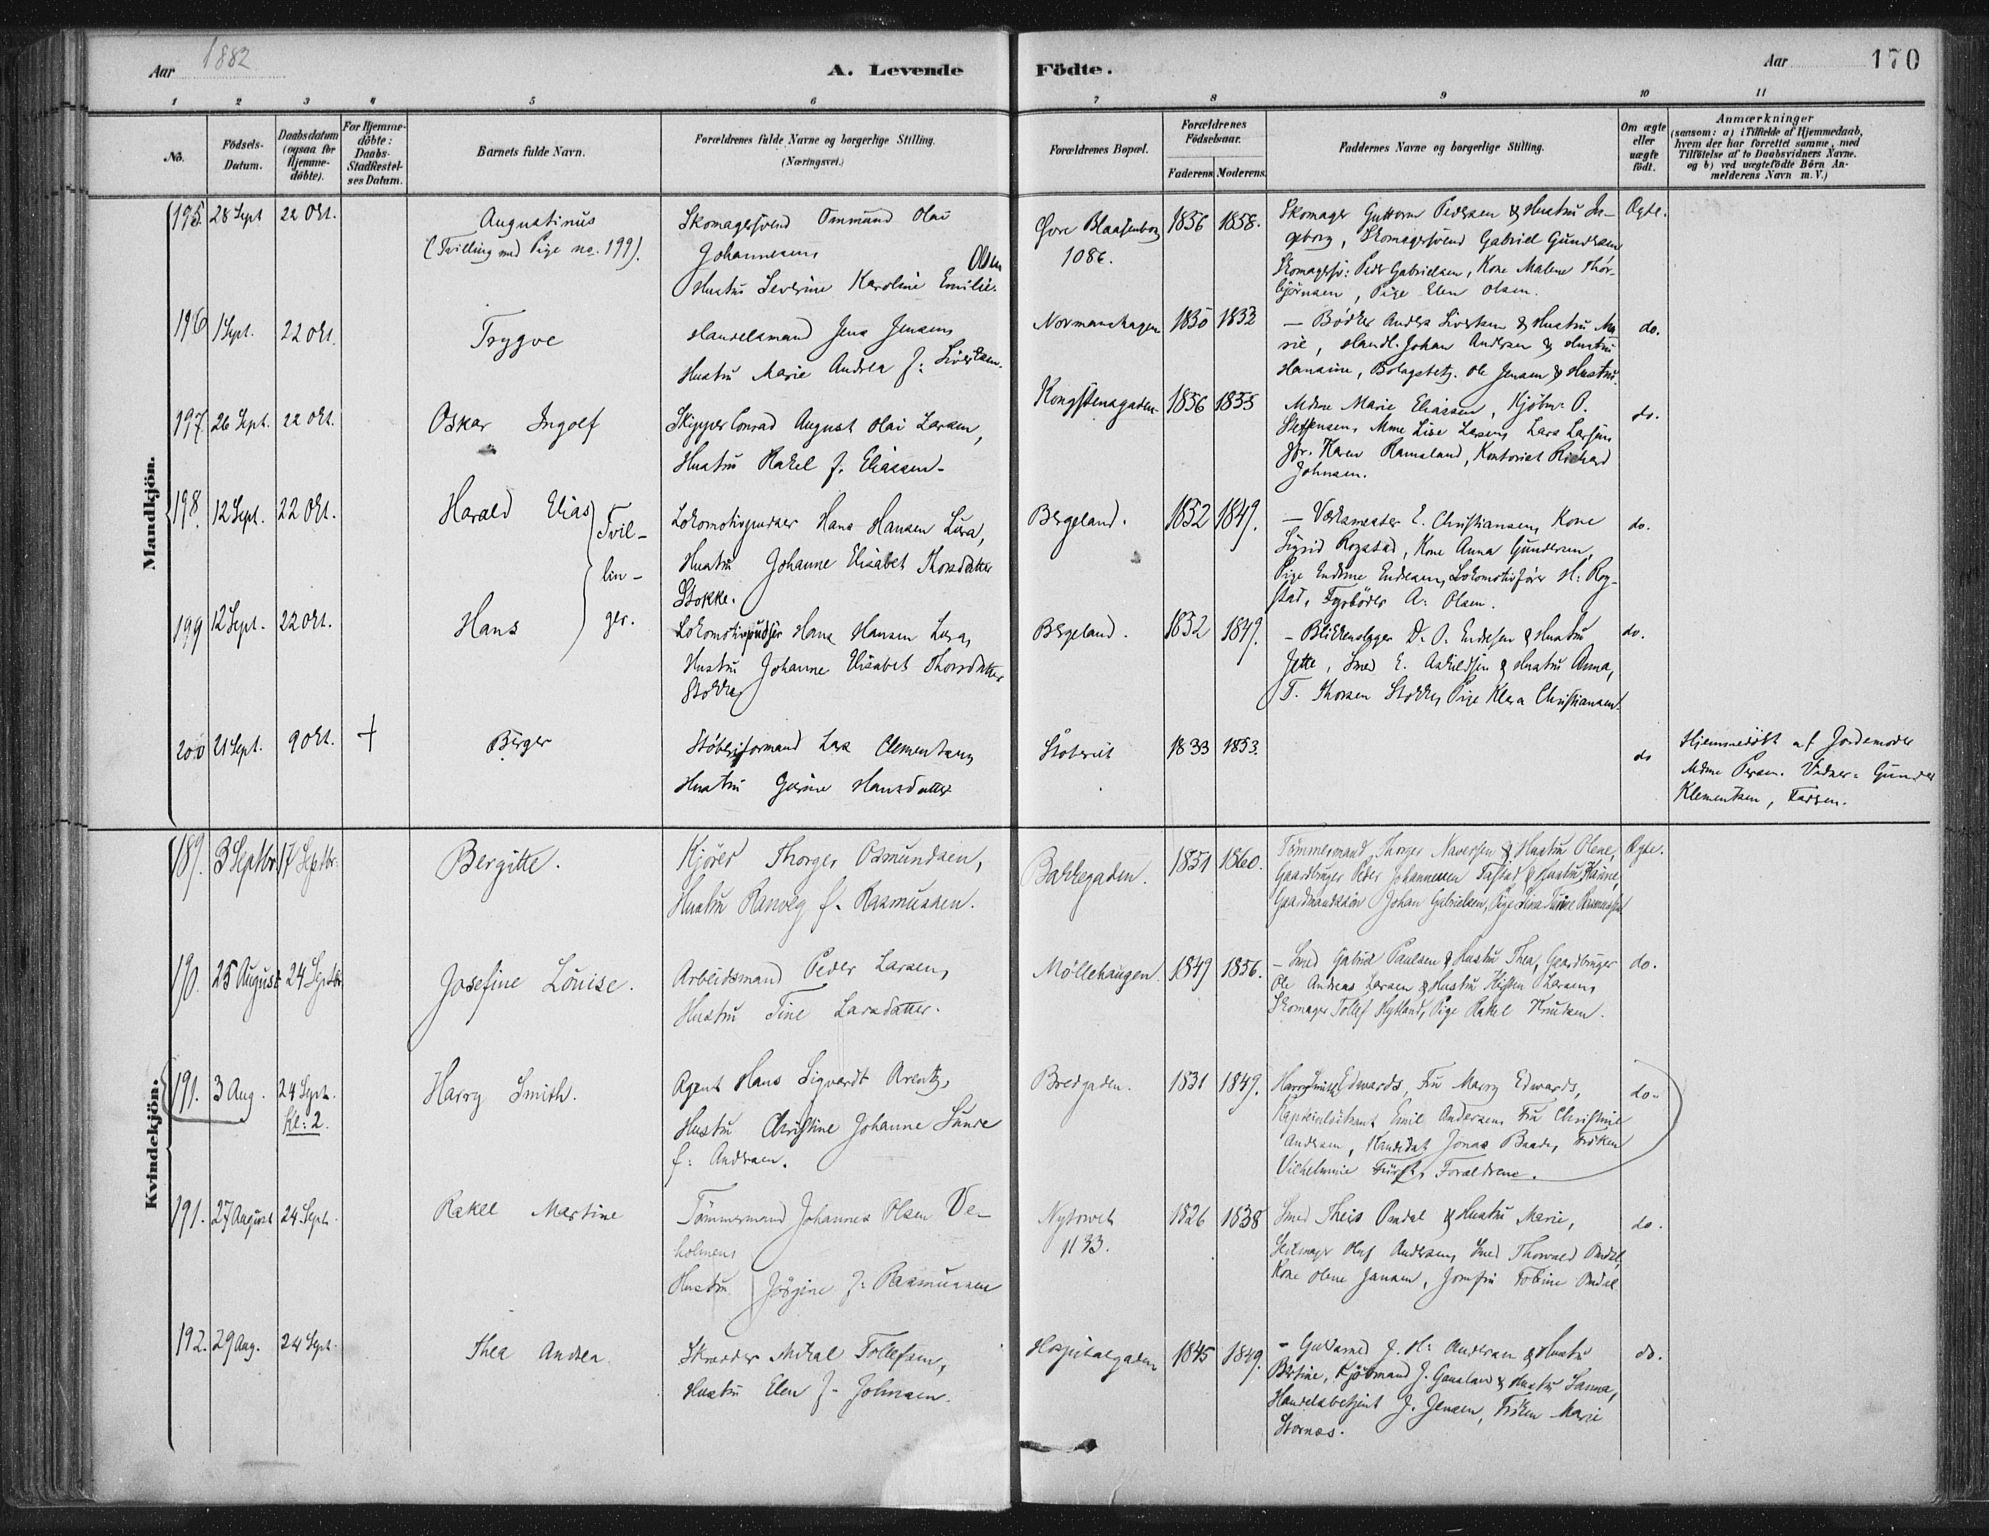 Aar 1882
A. Levende Födte.
Aar 170
1 2 3 4 5 6 7 8 9 10 11
No.
Födsels-Datum.
Daabsdatum (ogsaa for Hjemme-döbte).
For Hjemme-döbte: Daabs-Stadfæstel-ses Datum.
Barnets fulde Navn.
Forældrenes fulde Navne og borgerlige Stilling.
(Næringsvei.)
Forældrenes Bopæl.
Forældrenes Födselsaar.
Faderens. Moderens.
Faddernes Navne og borgerlige Stilling.
Om ægte eller uægte födt.
Anmærkninger
(saasom: a) i Tilfælde af Hjemmedaab,
hvem der har forrettet samme, med
Tilföielse af to Daabsvidners Navne.
og b) ved uægtefödte Börn An-
melderens Navn m. V.)
Mandkjön.
195. 28 Sept 22 Okt.
Augustinus
(Tvilling med Pige no. 199).
Skomagersvend Ommund Olai
Johannesen,
Hustru Severine Karoline Emilie Olsen
Øvre Blaasenborg
1086.
1856 1858.
Skomager Guttorm Pedersen & Hustru In-
geborg, Skomagersvend Gabriel Gundersen
Skomagersv: Peder Gabrielsen, Kone Malene Thor-
björnsen, Pige Elen Olsen.
Ægte.
196 1 Sept. 22 Okt.
Trygve
Handelsmand Jens Jensen,
Hustru Marie Andrea f: Sivertsen.
Normanshagen
1830 1832
— Bödker Anders Sivertsen & Hustru Ma-
rie, Handl. Johan Andersen & Hustru
Hansine, Ole Jensen & Hustru.
do.
197 26 Sept. 22 Okt.
Oskar Ingolf
Skipper Conrad August Olai Larsen,
Hustru Rakel f. Eliassen.
Kongstensgaden
1856 1855
Mdme Marie Eliassen, Kjöbm. O.
Steffensen, Mme Lise Larsen, Lars Larsen,
Jfr. Karen Ramsland, Kontorist Richard
Johnsen.
do.
198. 12 Sept. 22 Okt.
Harald Elias
Tvil-
lin-
ger.
Lokomotivpudser Hans Hansen Lura,
Hustru Johanne Elisabet Thorsdatter
Stokke.
Bergeland.
1852 1849.
— Værksmester E. Christiansen, Kone
Sigrid Rogstad, Kone Anna Gundersen,
Pige Endrine Endresen, Lokomotivförer H. Rog-
stad, Fyrböder A. Olsen.
do.
199 12 Sept. 22 Okt.
Hans
Lokomotivpudser Hans Hansen Lura,
Hustru Johanne Elisabet Thorsdatter
Stokke
Bergeland.
1852 1849.
— Blikkenslager D. O. Endresen & Hustru
Jette, Smed E. Askildsen & Hustru Anna,
T. Thorsen Stokke, Pige Klara Christiansen.
do.
200 21 Sept. 9 Okt. +
Birger
Stöberiformand Lars Clementsen,
Hustru Gurine Hansdatter
Stokevik
1833 1853.
do
Hjemmedöbt af Jordemoder
Mdme Persen. Vidner: Gunder
Klementsen, Farsen.
Kvindekjön.
189. 3 Septbr. 17 Septbr.
Bergitte.
Kjörer Thorger Osmundsen,
Hustru Ranveg f. Rasmussen.
Bakkegaden.
1851 1860.
Tömmermand Thorger Naversen & Hustru Olene,
Gaardbruger Peder Johannessen Tastad & Hustru Karine,
Gaardmandssön Johan Gabrielsen, Pige Rasmussen
Ægte.
190. 25 August 24 Septbr.
Josefine Louise.
Arbeidsmand Peder Larsen,
Hustru Tine Larsdatter.
Möllehaugen.
1849 1856.
— Smed Gabriel Paulsen & Hustru Thea, Gaardbruger
Ole Andreas Larsen & Hustru Kisten Larsen,
Skomager Tollef Hytland, Pige Rakel Knudsen.
do.
191. 3 Aug. 24 Sept. Kl: 2.
Harry Smith.
Agent Hans Sigvardt Arentz,
Hustru Christine Johanne Sunde
f: Andersen.
Bredgaden.
1831 1849.
Harry Smith Edwards, Fru Marry Edwards,
Kaptienlöitnant Emil Andersen, Fru Christine
Andersen, Kandidat Jonas Baade, Fröken
Vilhelmine Fürst, Forældrene.
do.
191. 27 August 24 Sept.
Rakel Martine
Tömmermand Johannes Olsen Ve-
holmen,
Hustru Jörgine f: Rasmussen
Nytorvet
1133.
1826 1838
Smed Theis Omdal & Hustru Marie,
Seilmager Oluf Andersen, Smed Thorvald Omdal,
Kone Olene Jansen, Jomfru Tobine Omdal
do.
192. 29 Aug. 24 Sept.
Thea Andrea.
Skrædder Mikal Tollefsen,
Hustru Elen f. Johnsen.
Hospitalgaden
1845 1849.
— Guldsmed J. H. Andersen & Hustru
Bertine, Kjöbmand J. Gausland & Hustru Sanna,
Handelsbetjent J. Jensen, Fröken Marie
Stornæs.
do.